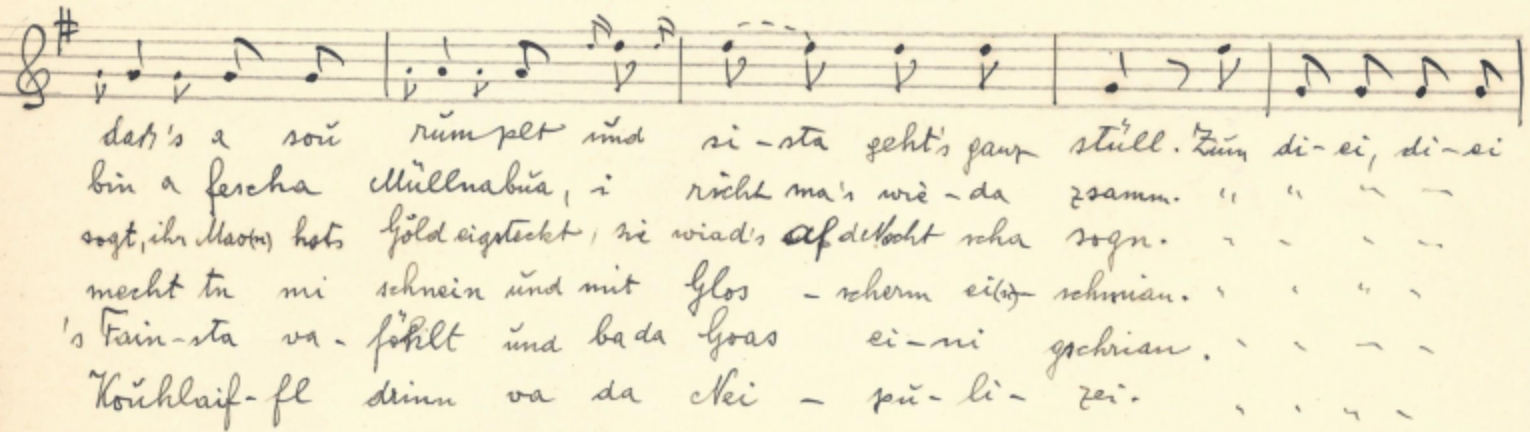 daß's a soŭ rŭmplt ŭnd si-sta geht's ganz stüll. Zŭm di-ei, di-ei
bin a fescha Müllnabŭa, i richt ma's wie-da zsamm. " " " "
sogt, ihr Mao(n) hots Göld eigsteckt, sie wiad's af de Nocht scha sogn. " " " "
mecht tn mi schnein ŭnd mit Glos - scherm ei(n)- schmian. " " " "
's Fain-sta va-föhlt ŭnd ba da Goas ei-ni gschrian. " " " "
Koŭhlaif-fl drinn va da Nei - pŭ-li-zei. " " " "